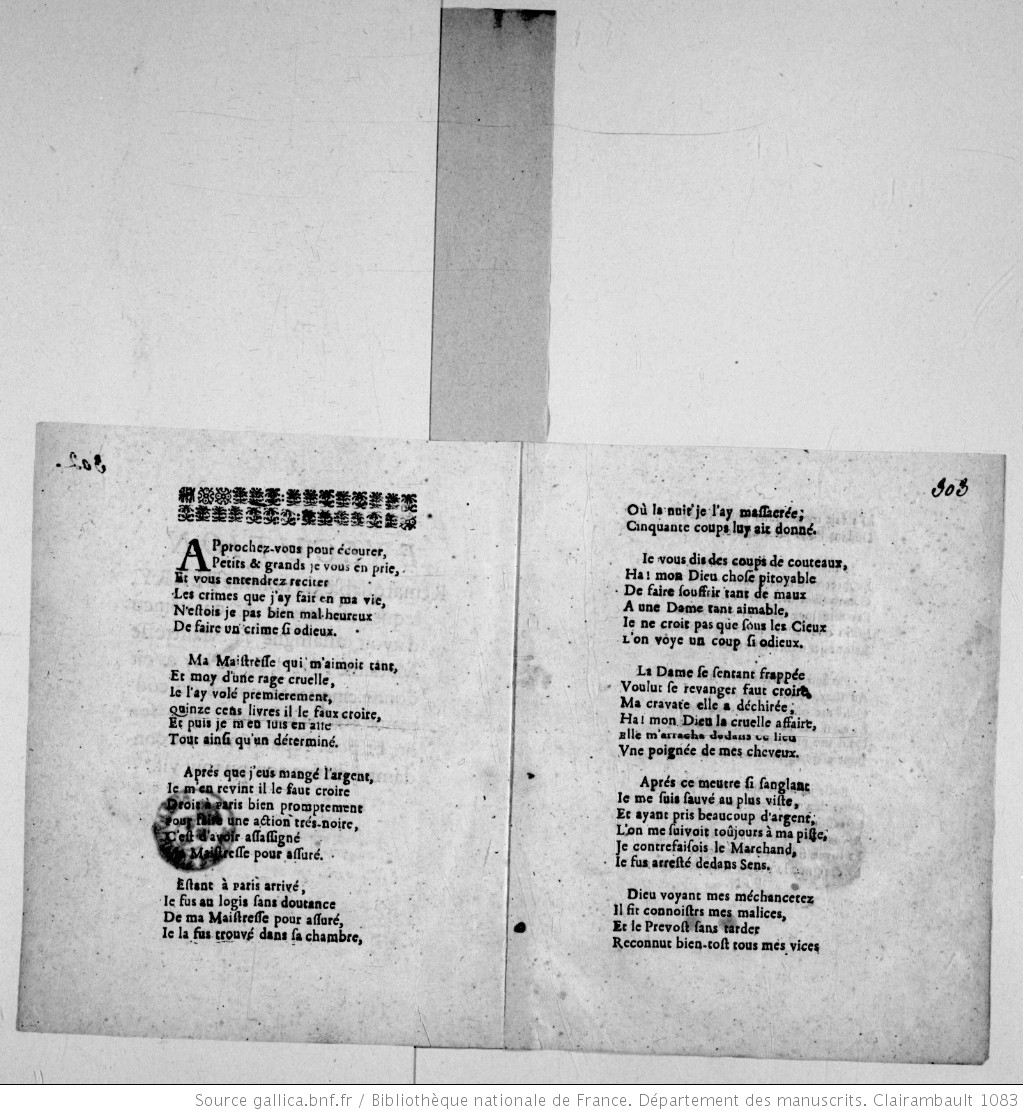 302.
APprochez-vous pour écouter,
Petits & grands je vous en prie,
Et vous entendrez reciter
Les crimes que j'ay fait en ma vie,
N'estois je pas bien mal-heureux
De faire un crime si odieux.
Ma Maistresse qui m'aimoit tant,
Et moy d'une rage cruelle,
Ie l'ay volé premierement,
Quinze cens livres il le faux croire,
Et puis je m'en suis en allé
Tout ainsi qu'un déterminé.
Aprés que j'eus mangé l'argent,
Ie m'en revint il le faut croire
Droit à Paris bien promptement
Pour faire une action trés-noire,
C'est d'avoir assassigné
Ma Maistresse pour assuré.
Estant à Paris arrivé,
Ie fus au logis sans doutance
De ma Maistresse pour assuré,
Ie la fus trouvé dans sa chambre,
303
Où la nuit je l'ay massacrée;
Cinquante coups luy ait donné.
Ie vous dis des coups de couteaux,
Ha! mon Dieu chose pitoyable
De faire souffrir tant de maux
A une Dame tant aimable,
Ie ne croit pas que sous les Cieux
L'on voye un coup si odieux.
La Dame se sentant frappée
Voulut se revanger faut croire,
Ma cravate elle a déchirée;
Ha! mon Dieu la cruelle affaire,
Elle m'arracha dedans ce lieu
Vne poignée de mes cheveux.
Aprés ce meutre si sanglant
Ie me suis sauvé au plus viste,
Et ayant pris beaucoup d'argent,
L'on me suivoit toûjours à ma piste,
Je contrefaisois le Marchand,
Ie fus arresté dedans Sens.
Dieu voyant mes méchancetez
Il fit connoistrs mes malices,
Et le Prevost sans tarder
Reconnut bien-tost tous mes vices
Source gallica.bnf.fr / Bibliothèque nationale de France. Département des manuscrits. Clairambault 1083